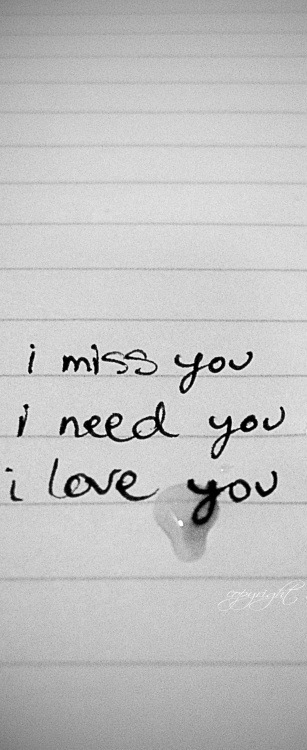 i miss you
i need you
i love you
copyright